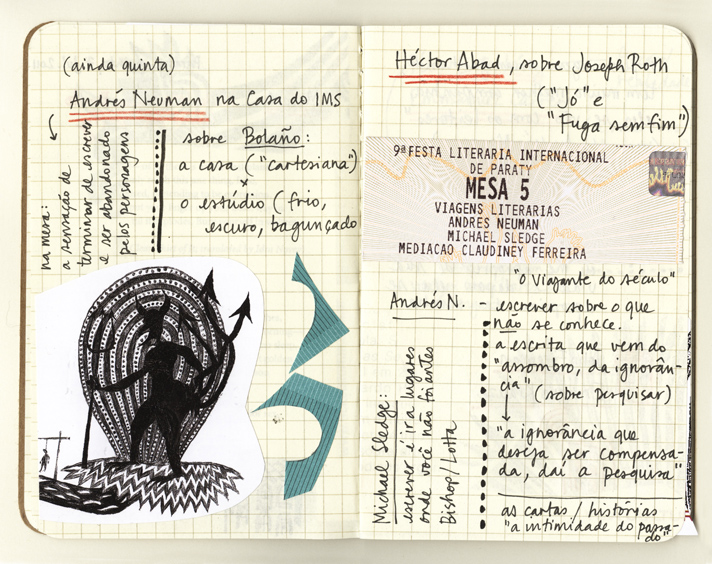 (ainda quinta)
Andrés Neuman na Casa do IMS
na mesa:
a sensação de
terminar de escrever
e ser abandonado
pelos personagens
sobre Bolaño:
a casa ("cartesiana")
x
o estúdio (frio,
escuro, bagunçado
Héctor Abad, sobre Joseph Roth
("Jó" e
"Fuga sem fim")
9ª FESTA LITERARIA INTERNACIONAL
DE PARATY
MESA 5
VIAGENS LITERARIAS
ANDRES NEUMAN
MICHAEL SLEDGE
MEDIACAO CLAUDINEY FERREIRA
"o Viajante do século"
Andrés N. - escrever sobre o que
não se conhece.
a escrita que vem do
"assombro, da ignorân-
cia" (sobre pesquisar)
"a ignorância que
deseja ser compensa-
da, daí a pesquisa"
as cartas / histórias
"a intimidade do passa-
do"
Michael Sledge:
escrever é ir a lugares
onde você não foi antes
Bishop/Lotta